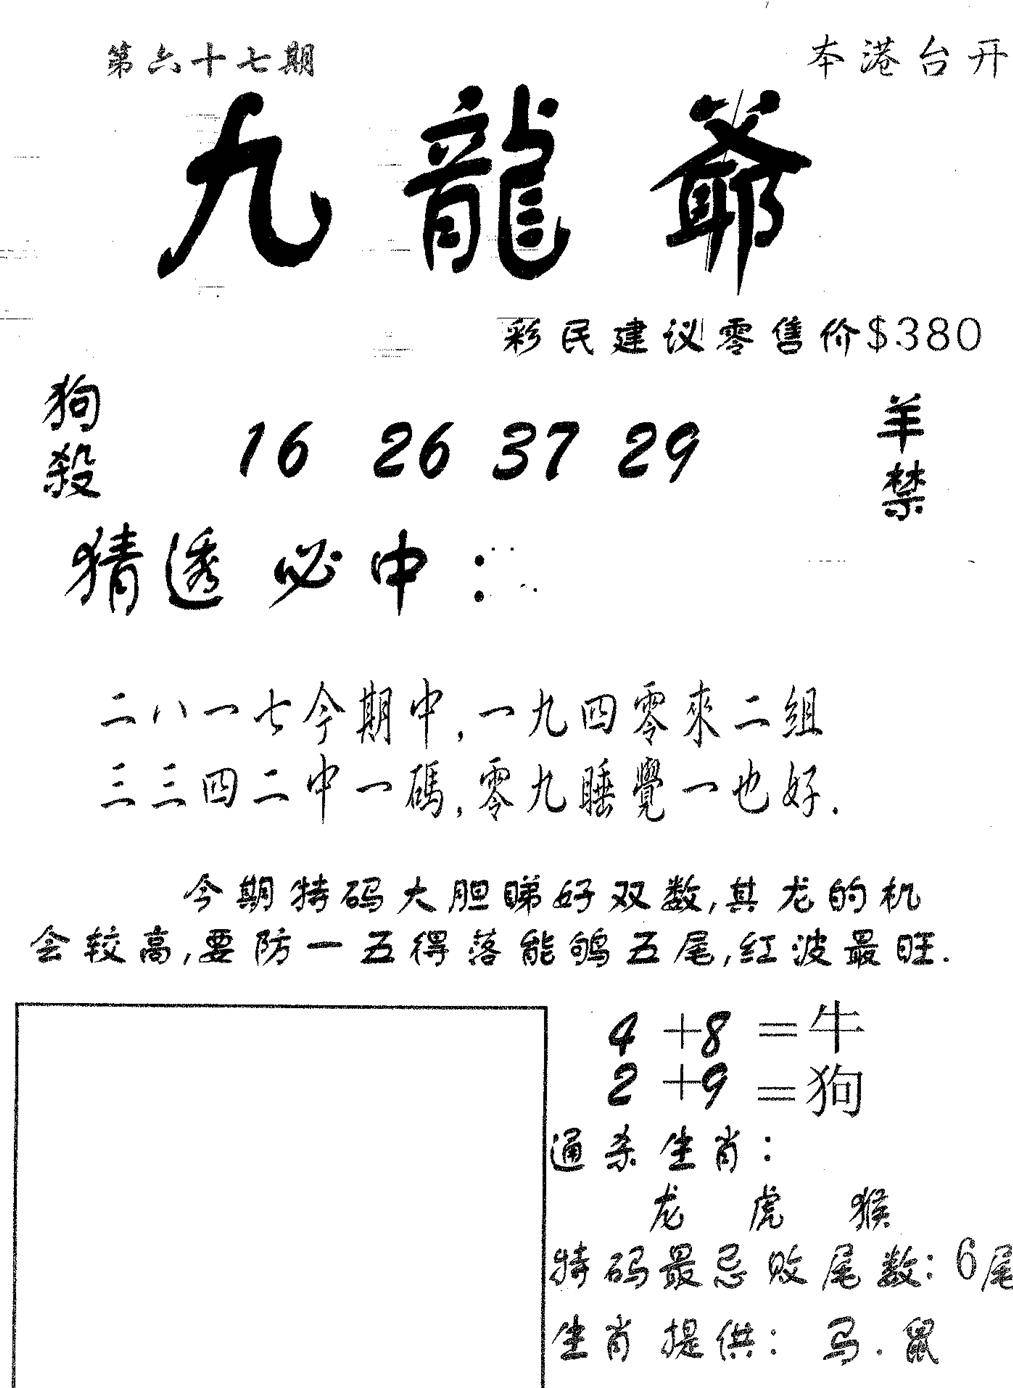 第六十七期 本港台开
九龍爺
彩民建议零售价$380
狗殺 16 26 37 29 羊禁
猜透必中：
二八一七今期中,一九四零來二組
三三四二中一碼,零九睡覺一也好.
今期特码大胆睇好双数,其龙的机
会较高,要防一五得落能鸲五尾,红波最旺.
4+8=牛
2+9=狗
通杀生肖：
龙 虎 猴
特码最忌败尾数：6尾
生肖提供：马.鼠